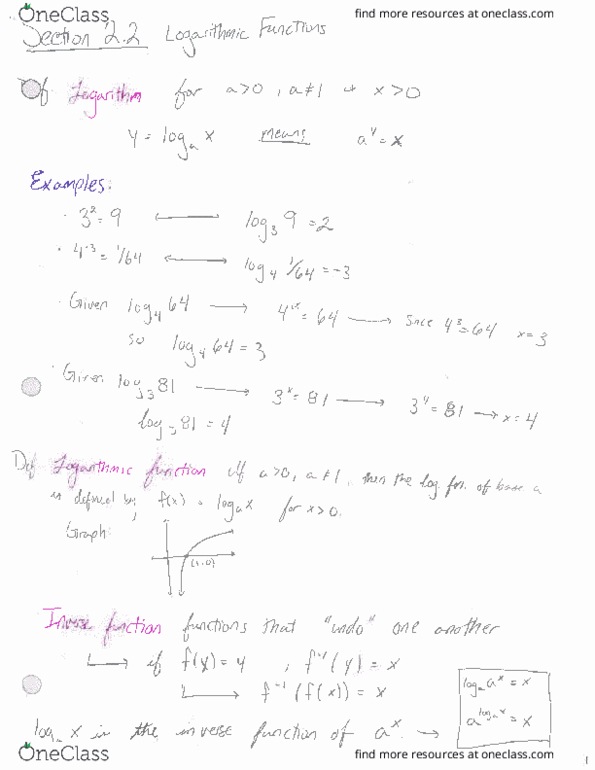 OneClass
find more resources at oneclass.com
Section 2.2 Logarithmic Functions
Def Logarithm for a>0, a≠1 + x>0
y = logₐ x means aʸ = x
Examples:
· 3² = 9 ⟷ log₃ 9 = 2
· 4⁻³ = 1/64 ⟷ log₄ 1/64 = -3
· Given log₄ 64 ⟶ 4ˣ = 64 ⟶ Since 4³ = 64 x = 3
so log₄ 64 = 3
· Given log₃ 81 ⟶ 3ˣ = 81 ⟶ 3⁴ = 81 ⟶ x = 4
log₃ 81 = 4
Def Logarithmic function if a>0, a≠1, then the log. fcn. of base a
is defined by; f(x) = logₐ x for x>0.
Graph:
(1,0)
Inverse function functions that "undo" one another
if f(x) = y ; f⁻¹(y) = x
f⁻¹(f(x)) = x
logₐ aˣ = x
a^(logₐ x) = x
logₐ x is the inverse function of aˣ. →
OneClass
find more resources at oneclass.com
1